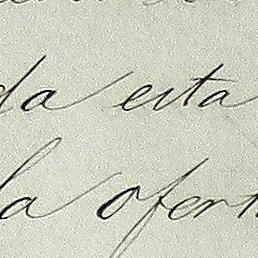 da esta
la ofert